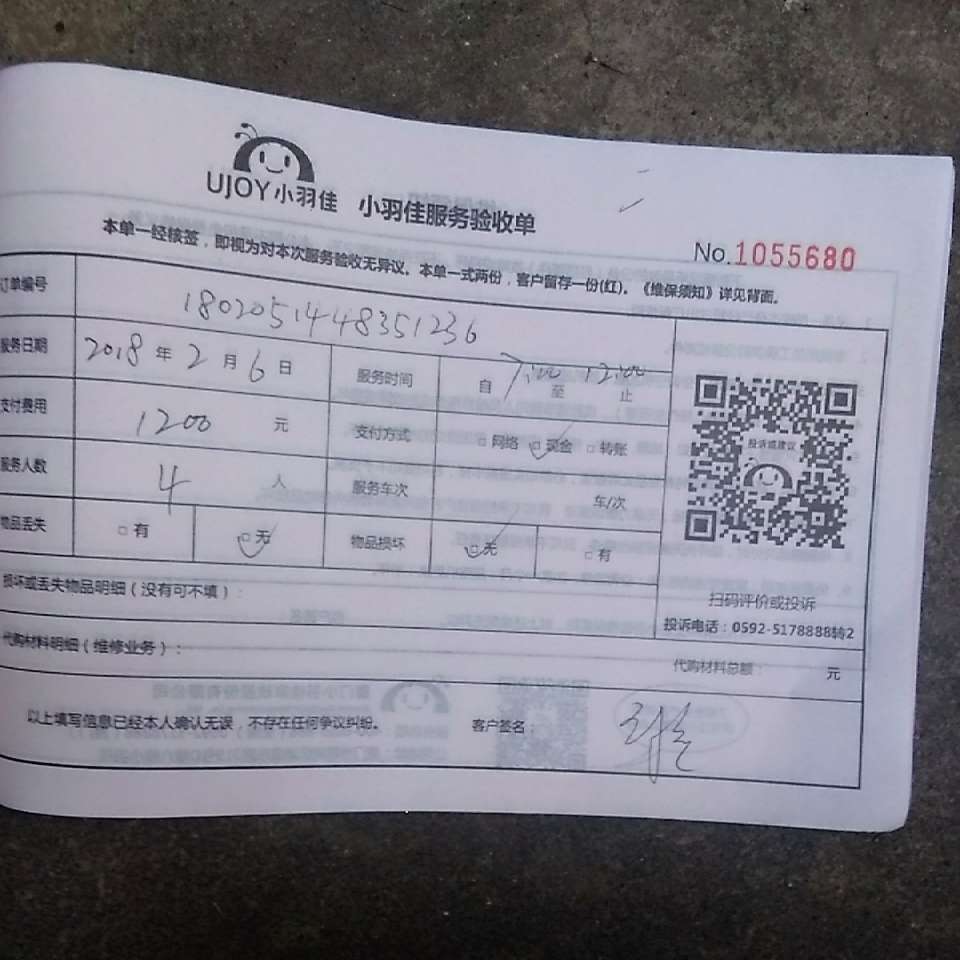 UJOY小羽佳 小羽佳服务验收单
No.1055680
本单一经核签，即视为对本次服务验收无异议。本单一式两份，客户留存一份(红)。《维保须知》详见背面。
订单编号 1802051448351236
服务日期 2018年2月6日 服务时间 自7:00至12:00止
支付费用 1200元 支付方式 □网络 □现金 □转账
服务人数 4人 服务车次 车/次
物品丢失 □有 □无 物品损坏 □无 □有
投诉或建议
扫码评价或投诉
投诉电话：0592-5178888转2
损坏或丢失物品明细（没有可不填）：
代购材料明细（维修业务）： 代购材料总额： 元
以上填写信息已经本人确认无误，不存在任何争议纠纷。 客户签名：